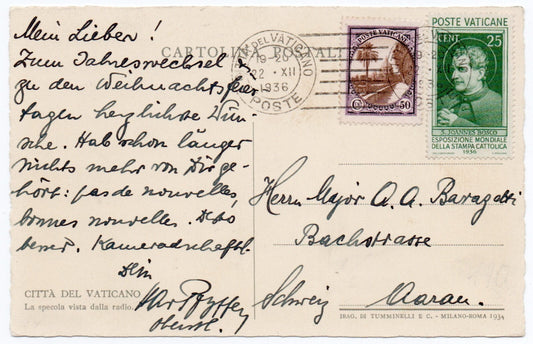 Mein Lieber!
Zum Jahreswechsel &
zu den Weihnachtsfeier
tagen herzlichste Wün-
sche. Hab schon länger
nichts mehr von Dir ge-
hört: pas de nouvelles,
bonnes nouvelles. Desto
besser. Kameradschaftl.
Dein
Oberstl.
CITTÀ DEL VATICANO
La specola vista dalla radio.
CARTOLINA POSTALE
CITTÀ DEL VATICANO
19-20
22 · XII
1936
POSTE
POSTE VATICANE
C. 50
POSTE VATICANE
CENT 25
S. IOANNES BOSCO
ESPOSIZIONE MONDIALE
DELLA STAMPA CATTOLICA
1936
Herrn Major A. A. Baragetti
Bachstrasse
Schweiz Aarau.
IRAG. DI TUMMINELLI E C. - MILANO-ROMA 1934